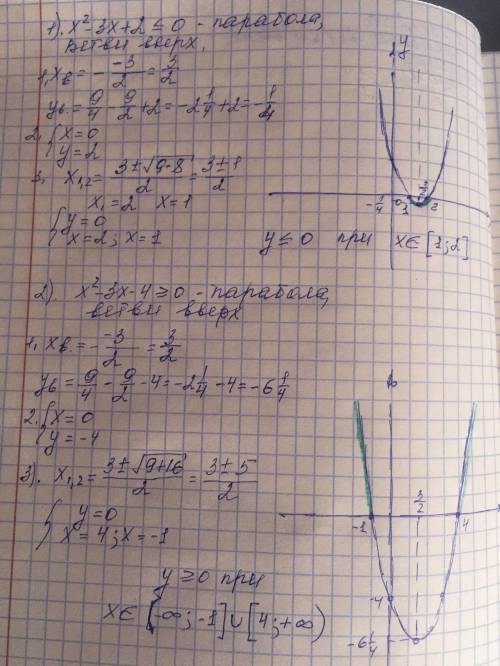 1). x² - 3x + 2 ≤ 0 - парабола,
ветви вверх.
1. xв. = - -3/2 = 3/2
yв. = 9/4 - 9/2 + 2 = -2 1/4 + 2 = -1/4
2. { x = 0
y = 2
3. x₁,₂ = 3 ± √9-8 / 2 = 3 ± 1 / 2
x₁ = 2 x = 1
{ y = 0
x = 2; x = 1
y
-1/4 0 1 2
y ≤ 0 при x ∈ [1; 2]
2) x² - 3x - 4 ≥ 0 - парабола,
ветви вверх
1. xв. = - -3/2 = 3/2
yв = 9/4 - 9/2 - 4 = -2 1/4 - 4 = -6 1/4
2. { x = 0
y = -4
3). x₁,₂ = 3 ± √9+16 / 2 = 3 ± 5 / 2
{ y = 0
x = 4; x = -1
3/2
-1 4
-4
-6 1/4
y ≥ 0 при
x ∈ [-∞; -1] ∪ [4; +∞)